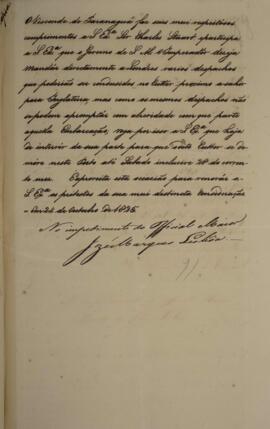 O Visconde de Paranaguá faz seus mui respeitosos
comprimentos a S. Exª. Sir Charles Stuart e participa
a S. Exª. que o Governo de S. M. o Imperador deseja
mandar directamente a Londres varios despachos
que poderião ser conduzidos no Cutter proximo a sahir
para Inglaterra, mas como os mesmos despachos não
se podem apromptar com a brevidade com que parte
aquella Embarcação, roga por isso a S. Exª. que haja
de intervir da sua parte para que o dito Cutter se de-
more neste Porto até Sabado inclusive 29 do corren-
te mez. Aproveita esta occasião para renovar a
S. Exª. os protestos da sua mui distincta consideração
Em 24 de Outubro de 1825.
No impedimento do Official Maior
José Marques Lisboa